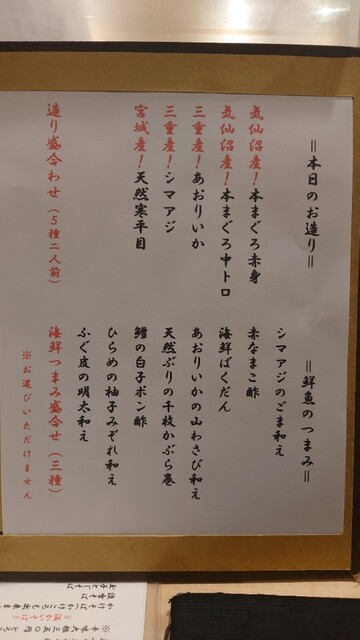 ＝本日のお造り＝
気仙沼産！本まぐろ赤身
気仙沼産！本まぐろ中トロ
三重産！あおりいか
三重産！シマアジ
宮城産！天然寒平目
造り盛合わせ（５種二人前）
＝鮮魚のつまみ＝
シマアジのごま和え
赤なまこ酢
海鮮ばくだん
あおりいかの山わさび和え
天然ぶりの千枚かぶら巻
鱈の白子ポン酢
ひらめの柚子みぞれ和え
ふぐ皮の明太和え
海鮮つまみ盛合せ（三種）
※お選びいただけません